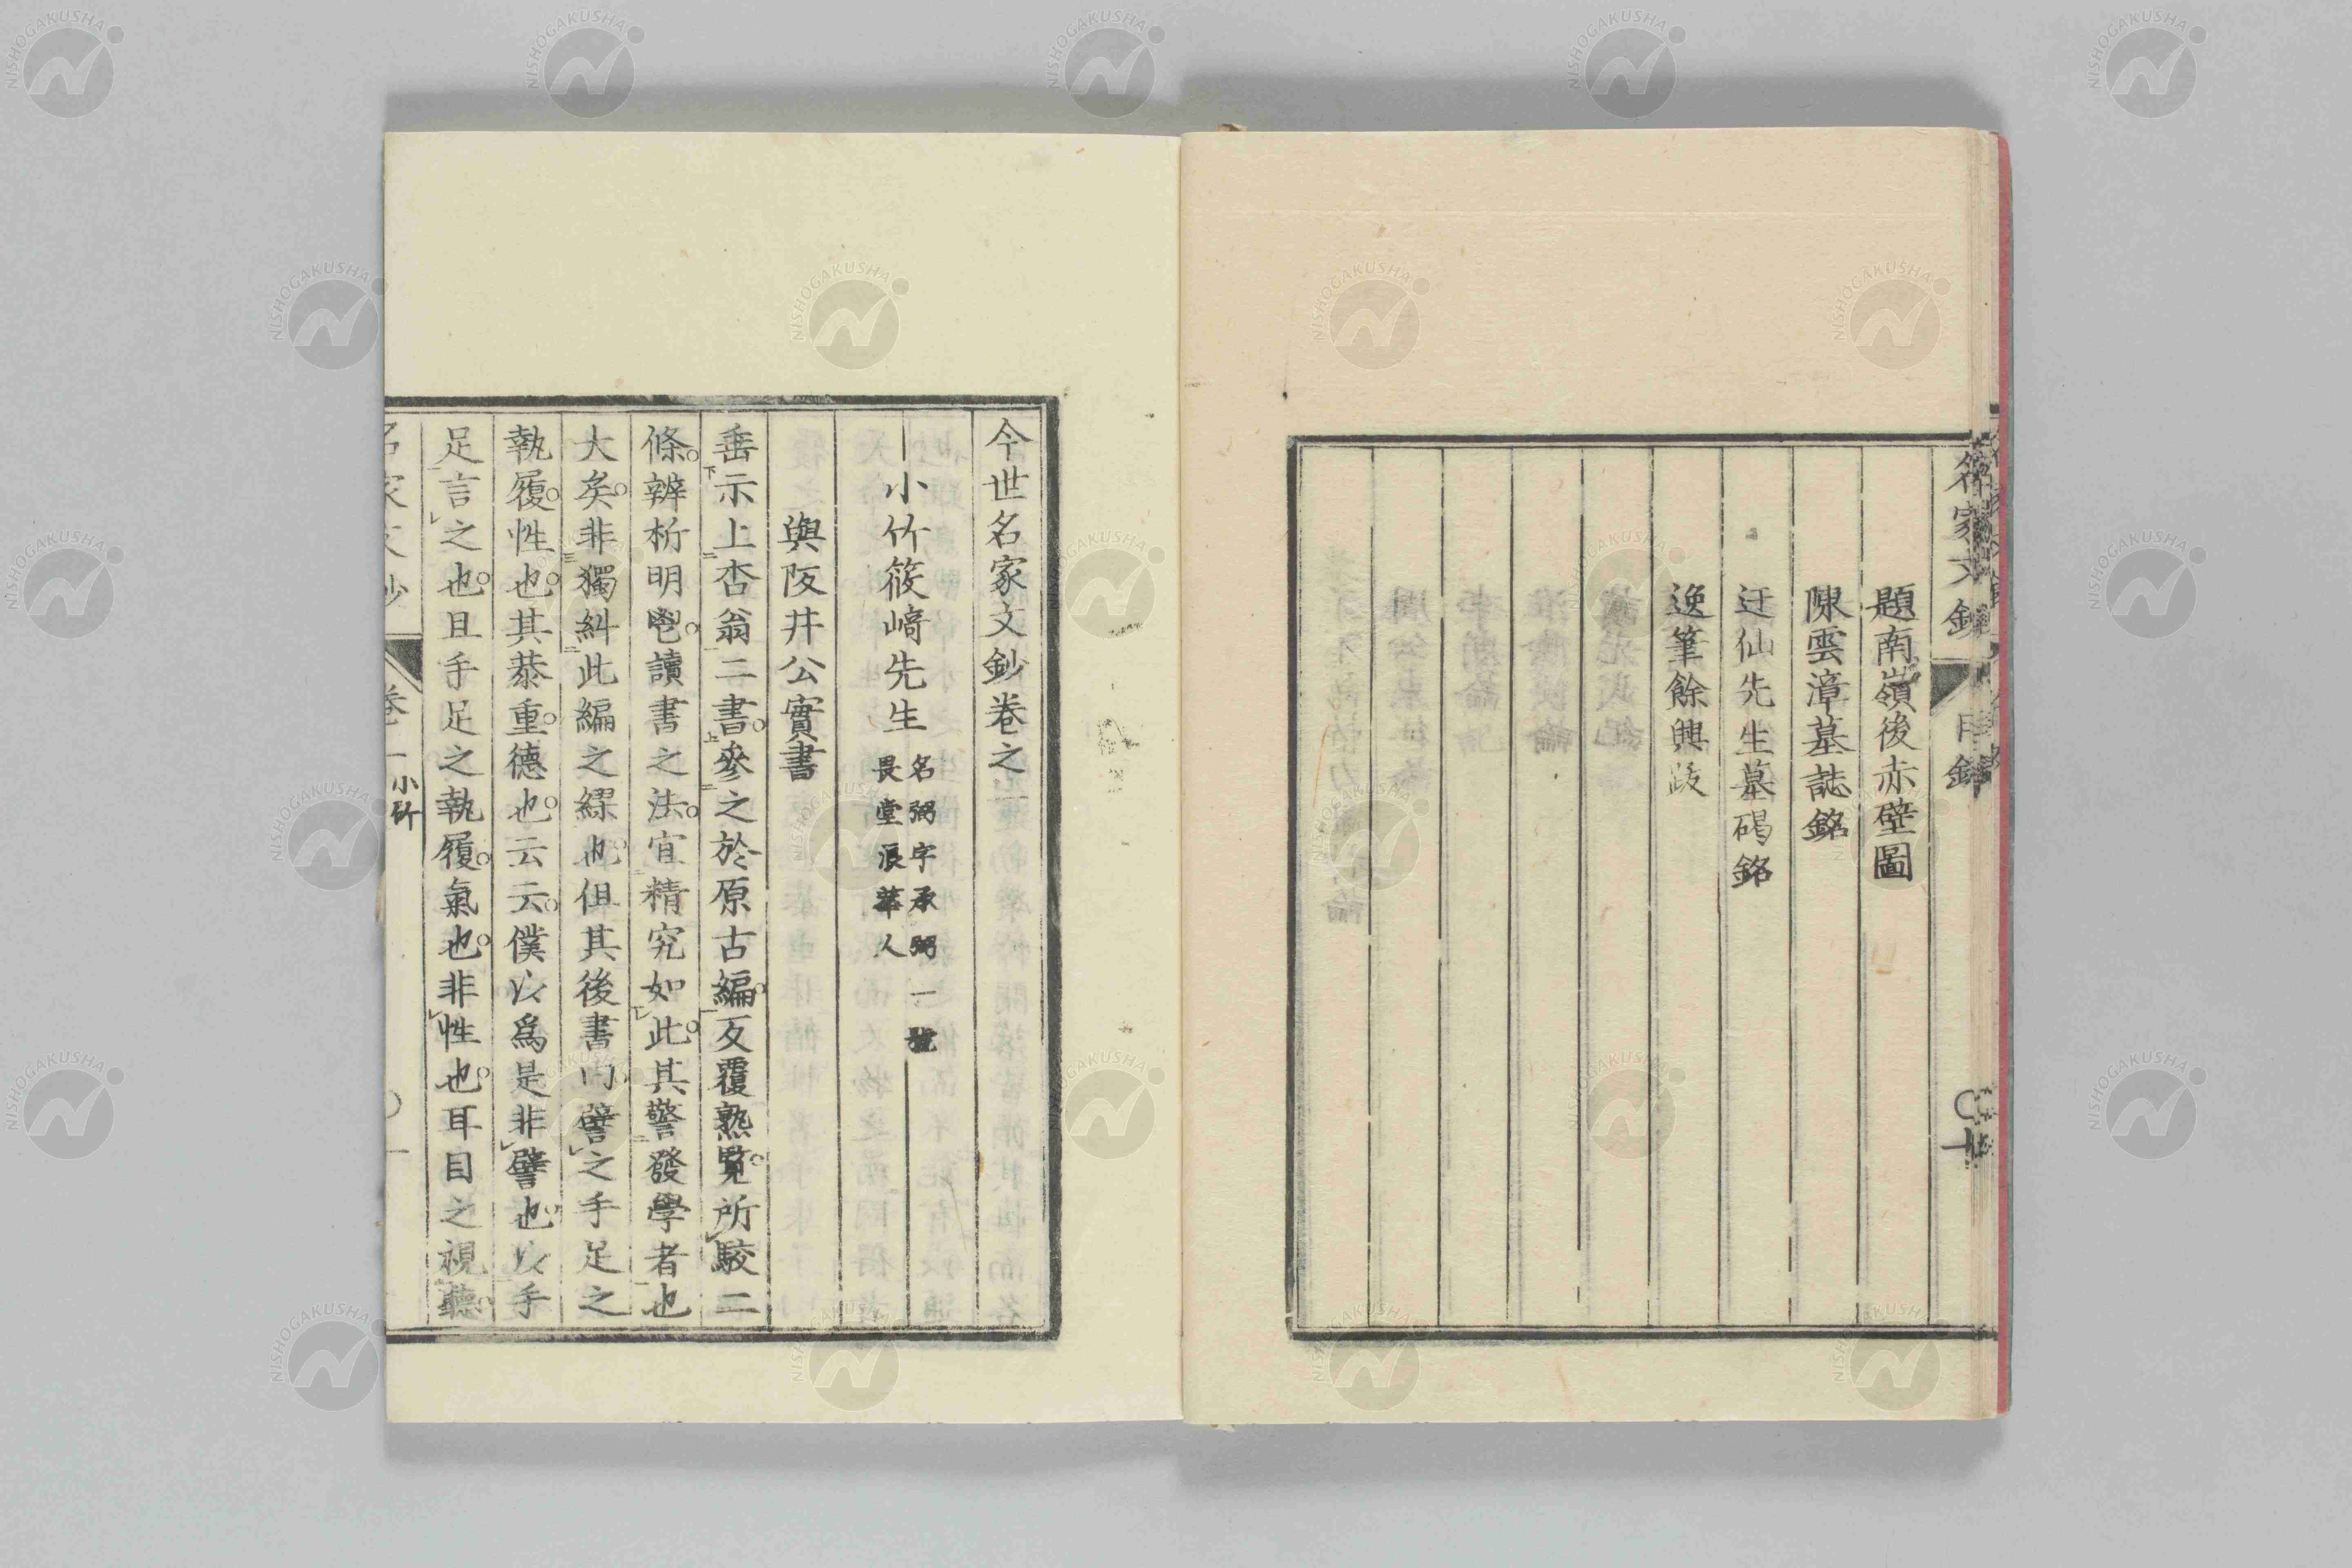 名家文鈔 目錄 〇十
題南嶺後赤壁圖
陳雲漳墓誌銘
迂仙先生墓碣銘
逸筆餘興跋
今世名家文鈔卷之一
小竹筱﨑先生
名弼字承弼一號
畏堂浪華人
與阪井公實書
垂示上杏翁二書參之於原古編反覆熟覽所駮二
條辨析明鬯讀書之法宜精究如此其警發學者也
大矣非獨糾此編之繆也但其後書內譬之手足之
執履性也其恭重德也云云僕以爲是非譬也以手
足言之也且手足之執履氣也非性也耳目之視聽
名家文鈔 卷一 小竹 〇一
NISHOGAKUSHA